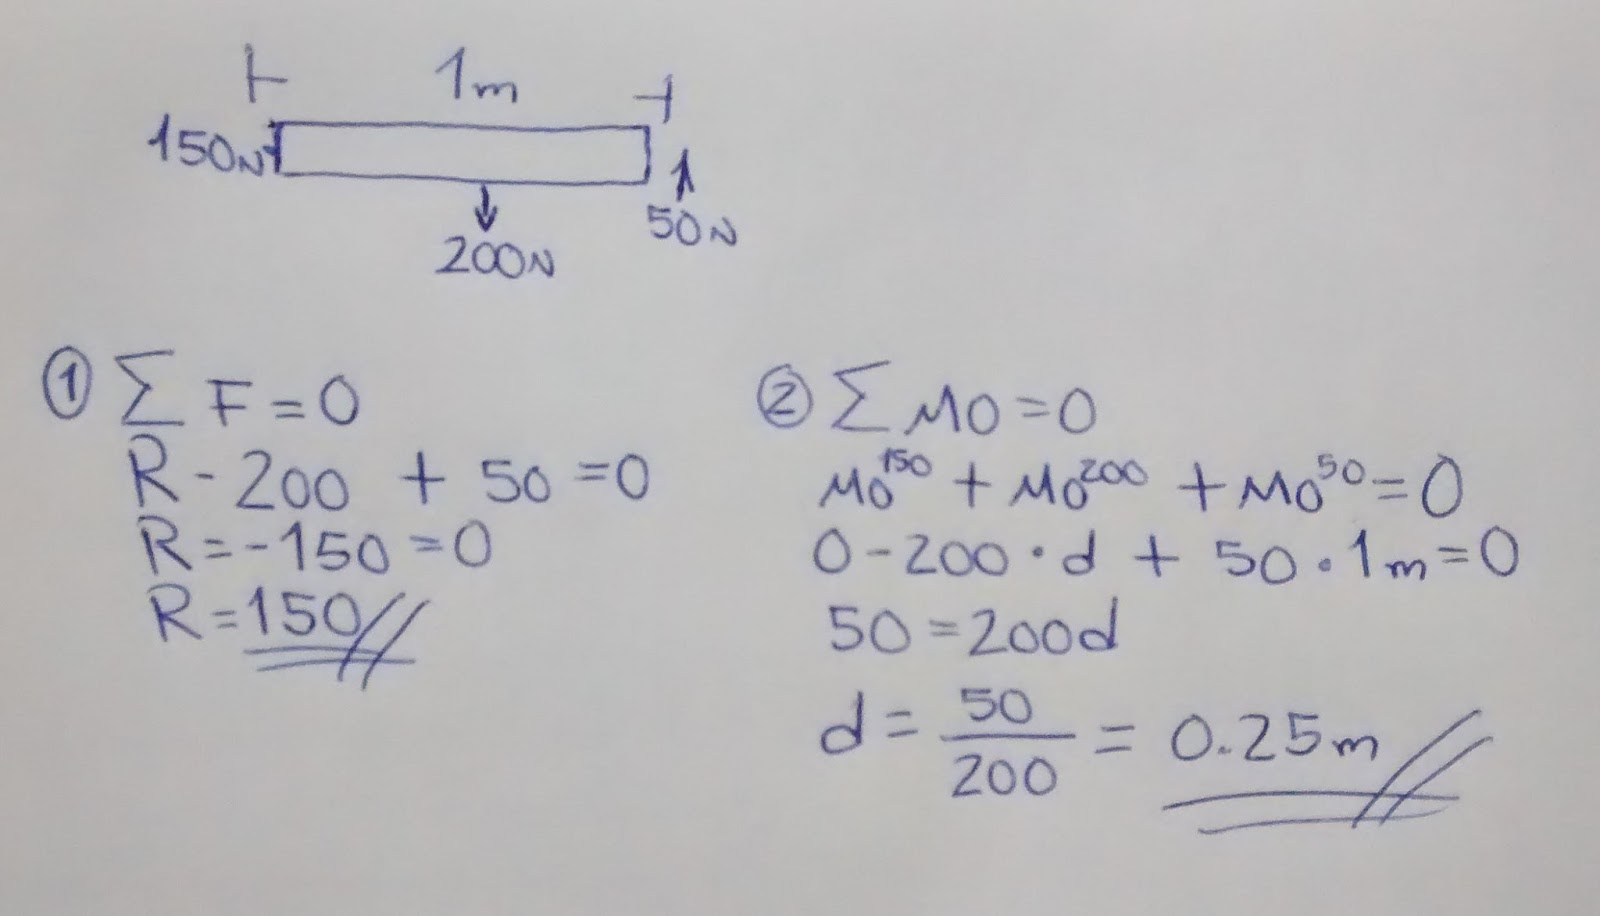 1m
150N
50N
200N
① Σ F = 0
R - 200 + 50 = 0
R = -150 = 0
R = 150
② Σ MO = 0
MO¹⁵⁰ + MO²⁰⁰ + MO⁵⁰ = 0
0 - 200 · d + 50 · 1m = 0
50 = 200d
d = 50/200 = 0.25m